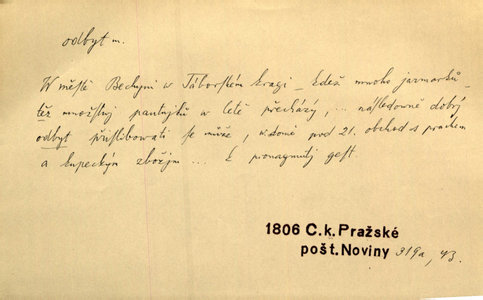 odbyt m.
W městě Bechyni w Táborském kragi _ kdež mnoho jarmarků
též množstwj pautnjků w letě přecházý, ... následowně dobrý
odbyt přislibowati se může, w domě pod 21. obchod s prachem
a kupeckým zbožjm ... k pronagmutj gest
1806 C.k.Pražské
pošt. Noviny 319a, 43.